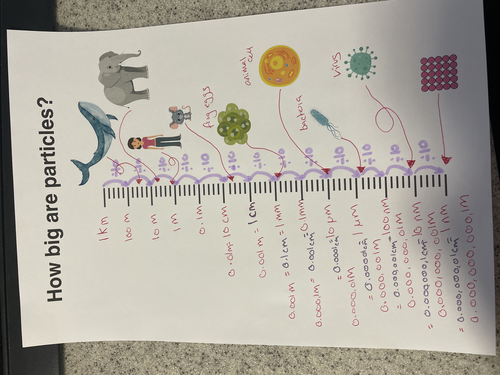 How big are particles?
eggs
animal cell
bacteria
virus
÷10
÷10
÷10
÷10
÷10
÷10
÷10
÷10
÷10
÷10
÷10
÷10
1 km
100 m
10 m
1 m
0.1m
0.01m 10 cm
0.001m = 1cm
0.001m = 0.1cm = 1mm
0.000,1m = 0.001cm = 0.1mm
10 µm
0.000,01m
1 µm
0.000,001m
100 nm
0.000,000,01m
= 0.000,000,1cm 10 nm
0.000,000,01m
1 nm
= 0.000,000,01cm
0.000,000,000,1m